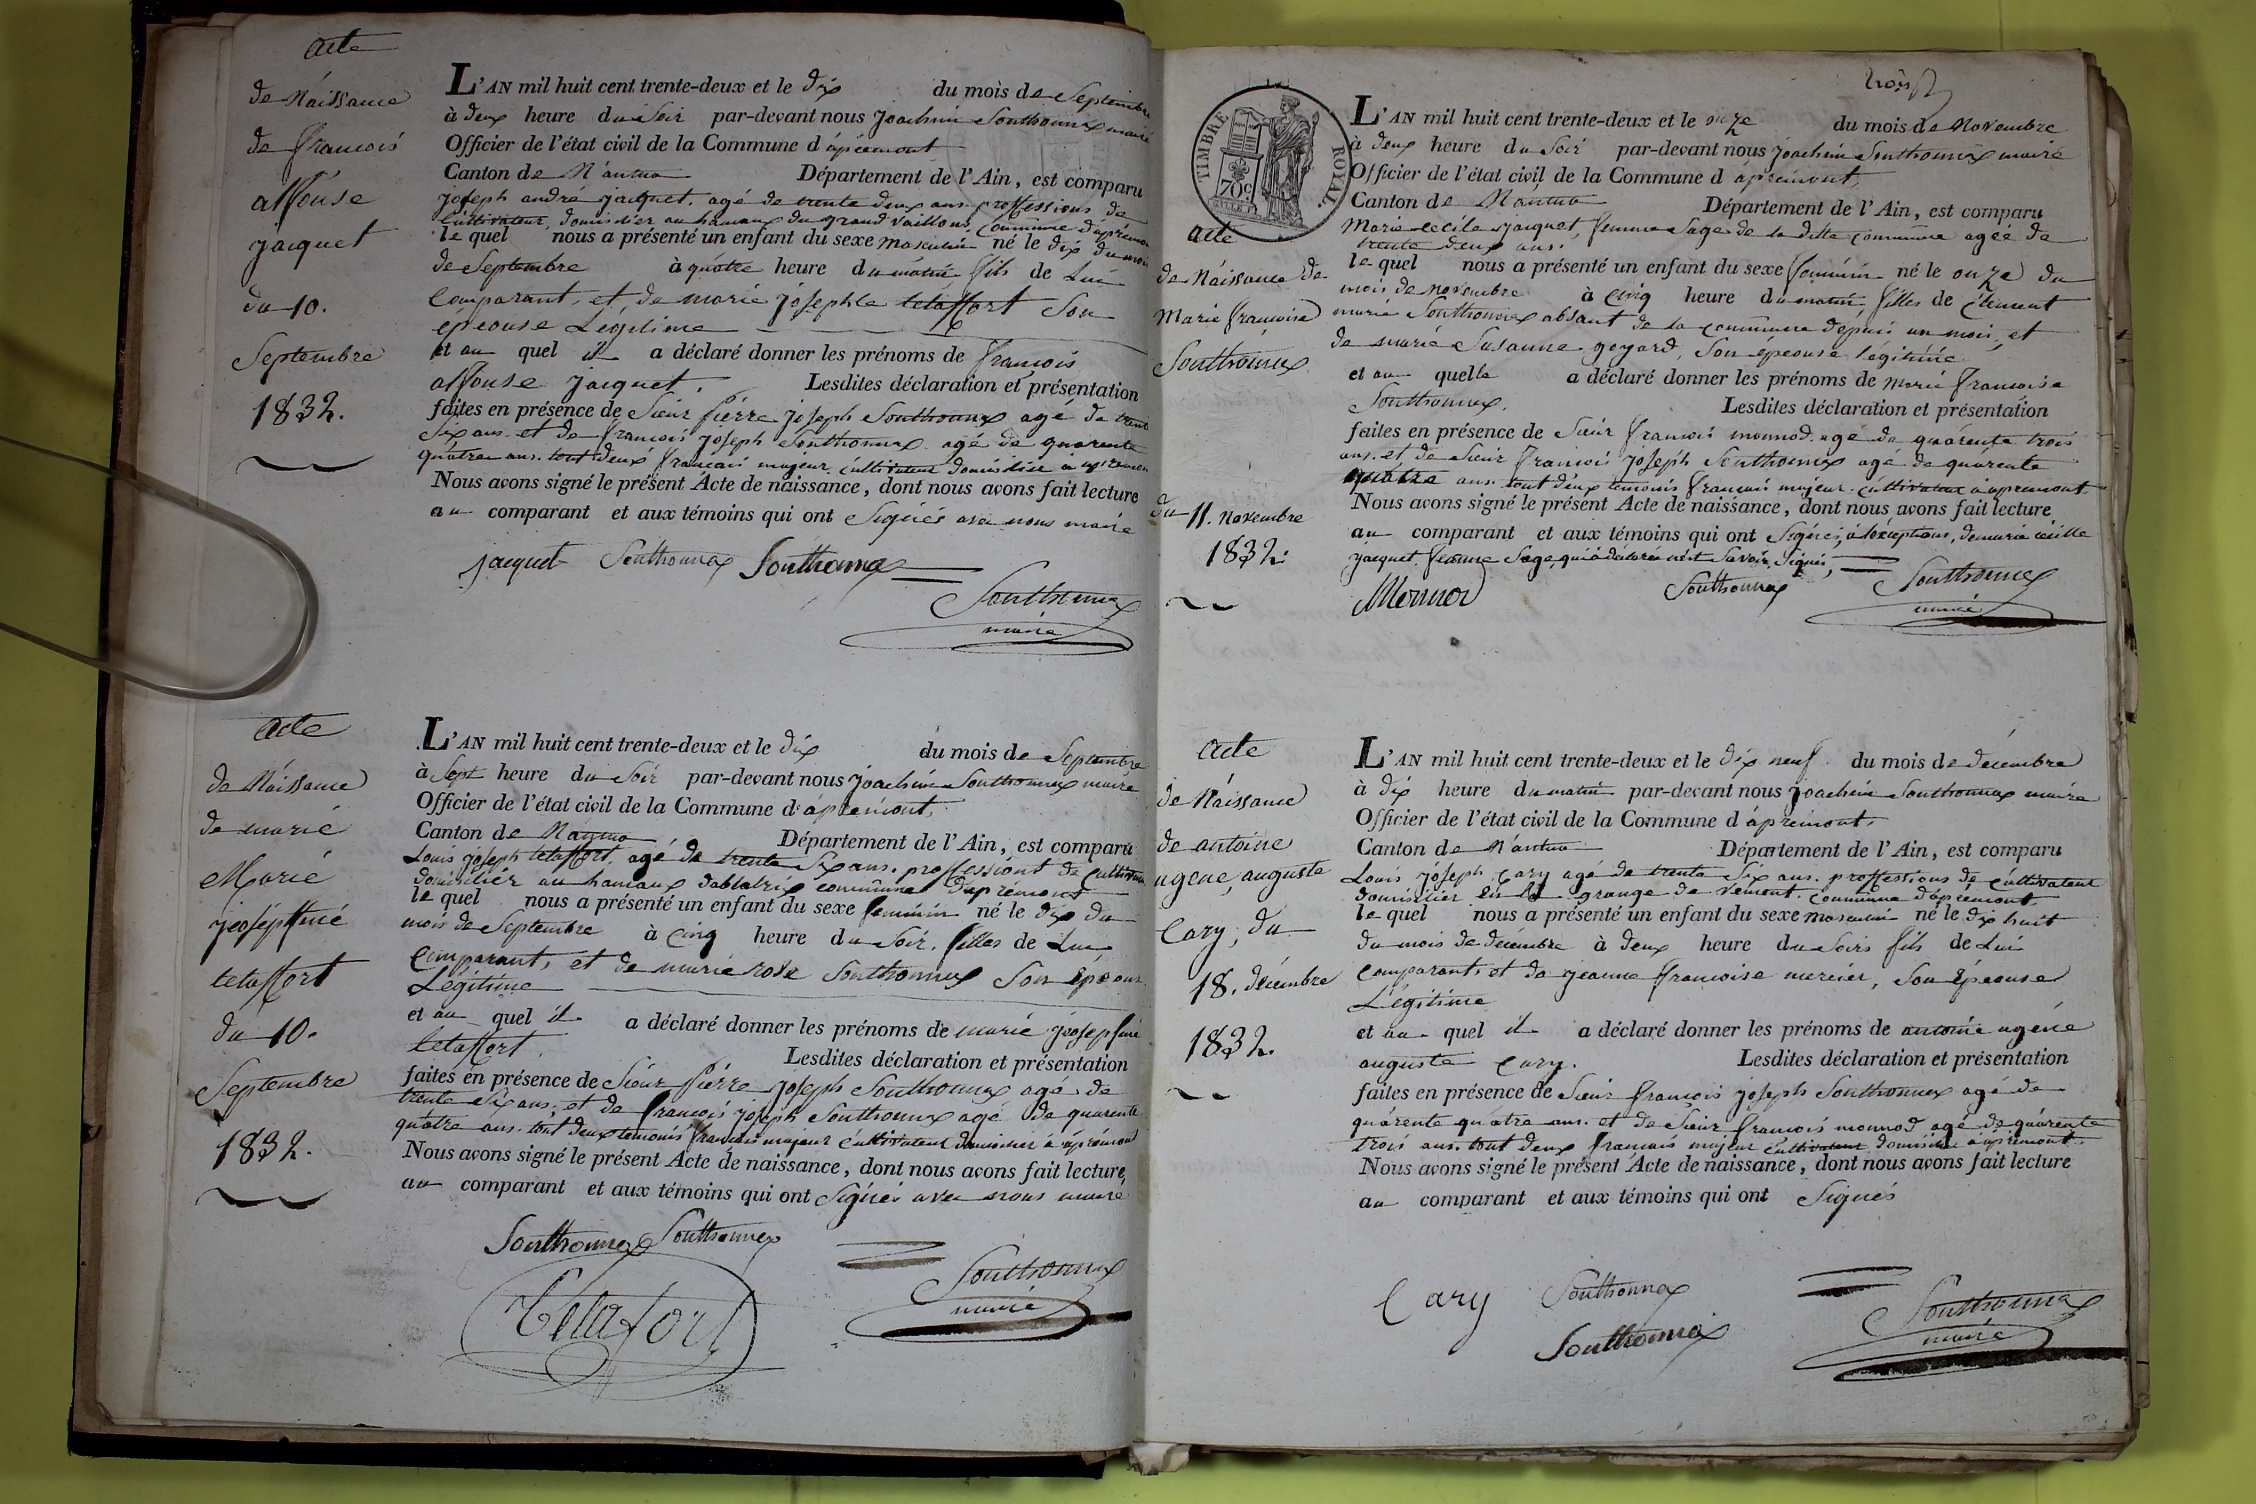 acte
de Náissance
de francois
alfonse
jacquet
du 10.
Septembre
1832.
L'AN mil huit cent trente-deux et le dix du mois de Septembre
à deux heure du Soir par-devant nous joachim Southonnax maire
Officier de l'état civil de la Commune d'ápremont
Canton de Nántua Département de l'Ain, est comparu
joseph andré jacquet. agé de trente deux ans. proffessions de
Cultivateur, domicilier au hamaux du grand vaillons, commune d'apremont
le quel nous a présenté un enfant du sexe masculin né le dix du mois
de Septembre à quátre heure du mátin fils de Lui
Comparant, et de marie josephte tetaffort Son
épeouse Légitime
et au quel il a déclaré donner les prénoms de francois
alfonse jacquet. Lesdites déclaration et présentation
faites en présence de Sieur pierre joseph Southonnax agé de trente
Six ans. et de francois joseph Southonnax agé de quarente
quátre ans. tout deux francais majeur cultivateur domicilier à apremont
Nous avons signé le présent Acte de naissance, dont nous avons fait lecture
au comparant et aux témoins qui ont Signés avec nous maire
jacquet Southonnax Southonnax
Southonnax
maire
acte
de Náissance
de marie
Marie
jeoséphine
tetaffort
du 10.
Septembre
1832.
L'AN mil huit cent trente-deux et le dix du mois de Septembre
à Sept heure du Soir par-devant nous joachim Southonnax maire
Officier de l'état civil de la Commune d'ápremont,
Canton de Nantua Département de l'Ain, est comparu
Louis joseph tetaffort, agé de trente Six ans. proffessiont de cultivateur
domicilier au hamaux dablatrix commune d'apremont
le quel nous a présenté un enfant du sexe feminin né le dix du
mois de Septembre à Cinq heure du Soir. filles de Lui
Comparant, et de marie rose Southonnax Son épeouse
Légitime
et au quel il a déclaré donner les prénoms de marie jeosephine
tetaffort. Lesdites déclaration et présentation
faites en présence de Sieur pierre joseph Southonnax agé de
trente Six ans, et de francois joseph Southonnax agé de quarente
quátre ans. tout deux temoins francais majeur cultivateur domicilier à ápremont
Nous avons signé le présent Acte de naissance, dont nous avons fait lecture,
au comparant et aux témoins qui ont Signés avec nous maire
Southonnax Southonnax
Tétafort
Southonnax
maire
trois
TIMBRE ROYAL.
70c
acte
de Náissance de
Marie francoise
Southonnax
du 11. novembre
1832.
L'AN mil huit cent trente-deux et le onze du mois de Novembre
à deux heure du Soir par-devant nous joachim Southonnax maire
Officier de l'état civil de la Commune d'ápremont,
Canton de Nántua Département de l'Ain, est comparu
Marie cecile jacquet, femme Sage de la ditte commune agéé de
trente deux ans.
le quel nous a présenté un enfant du sexe feminin né le onze du
mois de novembre à Cinq heure du matin filles de clement
marie Southonnax absant de la commune depuis un mois, et
de marie Susanne goyard, Son épeouse légitime
et au quelle a déclaré donner les prénoms de marie francoise
Southonnax. Lesdites déclaration et présentation
faites en présence de Sieur francois monnod. agé de quárente trois
ans. et de Sieur francois joseph Southonnax agé de quárente
quátre ans. tout deux temoins francais majeur. cultivateur à apremont.
Nous avons signé le présent Acte de naissance, dont nous avons fait lecture
au comparant et aux témoins qui ont Signés, à léxceptions, de marie cécille
jacquet. femme Sage, qui à declarée nést Savoir, Signés,
Monnod Southonnax Southonnax
maire
acte
de Náissance
de antoine
ugene, auguste
Cary, du
18. décembre
1832.
L'AN mil huit cent trente-deux et le dix neuf. du mois de décembre
à dix heure du matin par-devant nous joachim Southonnax maire
Officier de l'état civil de la Commune d'ápremont,
Canton de Nántua Département de l'Ain, est comparu
Louis joseph Cary agé de trente Six ans. proffestions de cultivateur
domicilier en la grange de vement. commune d'ápremont.
le quel nous a présenté un enfant du sexe masculin né le dix huit
du mois de décembre à deux heure du Soirs fils de Lui
Comparant, et de jeanne francoise mercier, Son épeouse
Légitime
et au quel il a déclaré donner les prénoms de antoine ugéne
auguste Cary. Lesdites déclaration et présentation
faites en présence de Sieur françois joseph Southonnax agé de
quárente quátre ans. et de Sieur francois monnod agé de quárente
trois ans. tout deux francais majeur cultivateur domicilier à apremont.
Nous avons signé le présent Acte de naissance, dont nous avons fait lecture
au comparant et aux témoins qui ont Signés
Cary Southonnax
Southonnax
Southonnax
maire